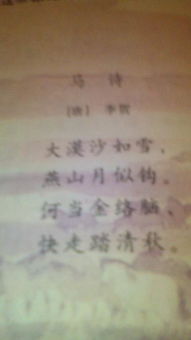 马 诗
[唐] 李贺
大漠沙如雪，
燕山月似钩。
何当金络脑，
快走踏清秋。